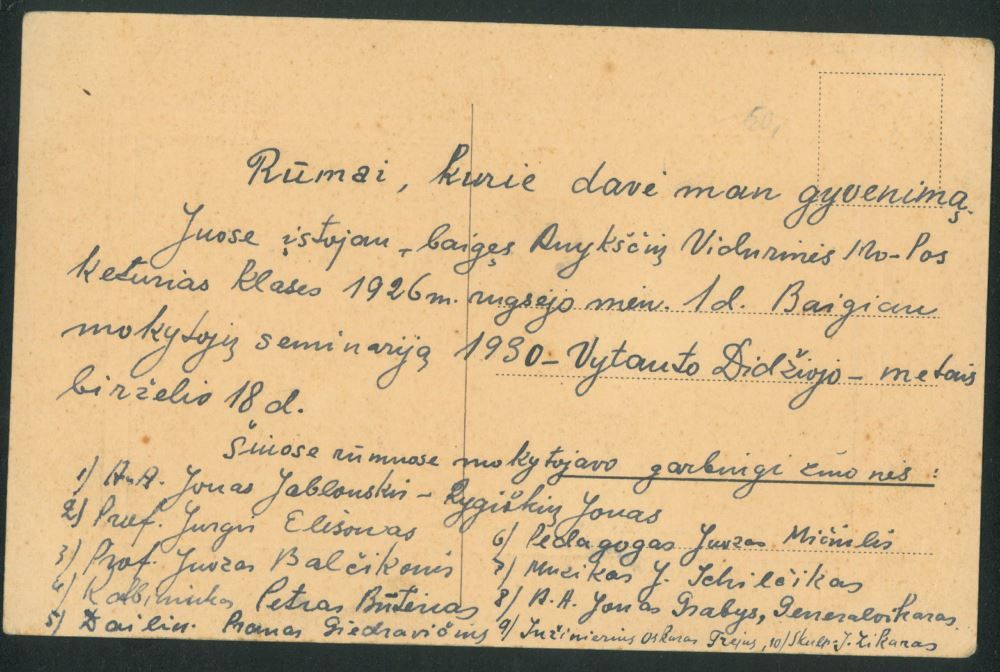 50,
Rūmai, kurie davė man gyvenimą.
Juose įstojau, baigęs Anykščių Vidurinės Mo-Los
keturias klases 1926 m. rugsėjo mėn. 1 d. Baigiau
mokytojų seminariją 1930 – Vytauto Didžiojo – metais
birželio 18 d.
Šiuose rūmuose mokytojavo garbingi žmonės:
1) A.A. Jonas Jablonskis – Rygiškių Jonas
2) Prof. Jurgis Elisonas
3) Prof. Juozas Balčikonis
4) Kalbininkas Petras Būtėnas
5) Dailin. Pranas Giedravičius
6) Pedagogas Juozas Mičiulis
7) Muzikas J.
8) A.A. Jonas Grabys, Generalvikaras.
9) Inžinierius Oskaras Trejus, 10) Skulp. J. Zikaras